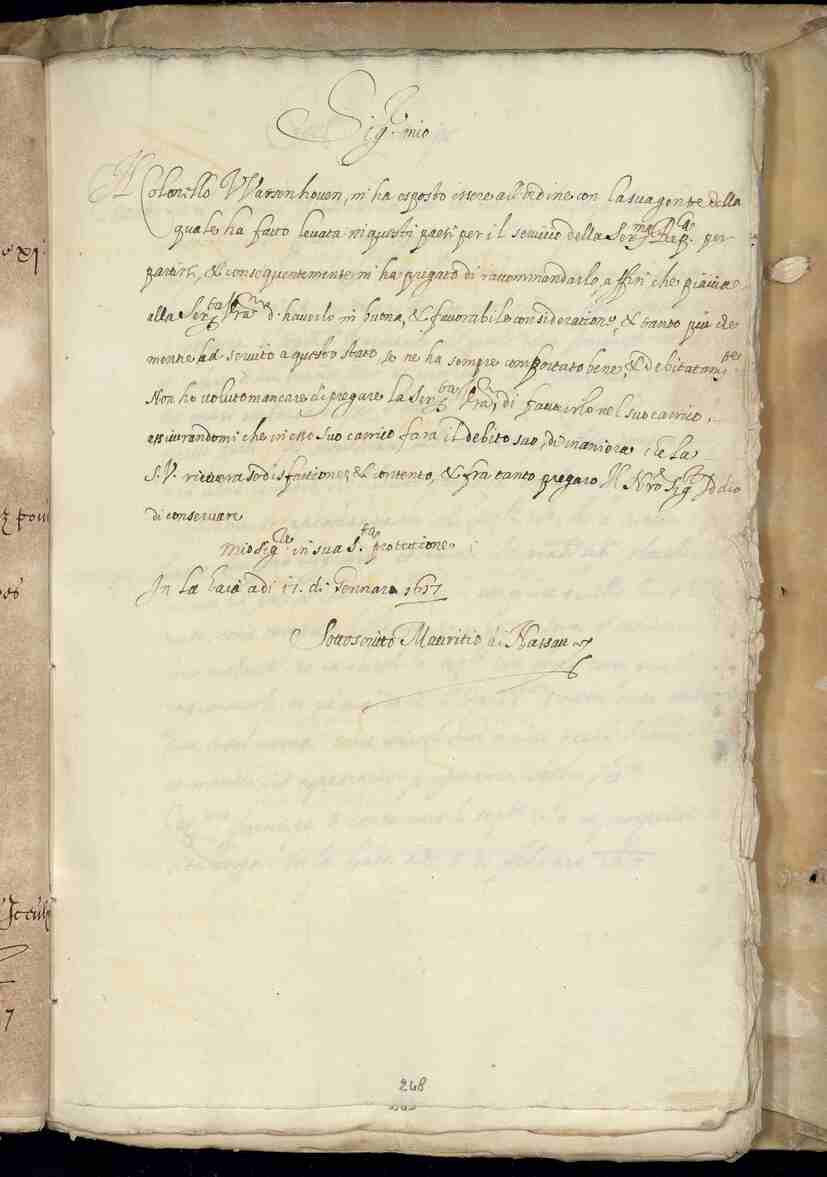 Sig.r mio
Il Colonello Warsenhoven, m'ha esposto essere all'ordine con la sua gente della
quale ha fatto levata in questi paesi per il servitio della Ser.ma Rep.ca per
partire, & consequentemente m'ha pregato di raccommandarlo, affin che piaccia
alla Ser.tà V.ra d'haverlo in buona, & favorabile consideratione, & tanto più che
mentre ha servito a questo stato, se ne ha sempre comportato bene, & debitatam.te
Non ho voluto mancare di pregare la Ser.tà V.ra, di favorirlo nel suo carrico,
assicurandomi che in esso suo carrico fara il debito suo, de maniera che la
S.V. ricevera sodisfattione, & contento, & fra tanto pregaro Il N.ro Sig.r Iddio
di conservare
mio Sig.re in sua S.ta protettione
In La haia adi 11. di Gennaro 1617
Sottoscritto Mauritio di Nassau
248